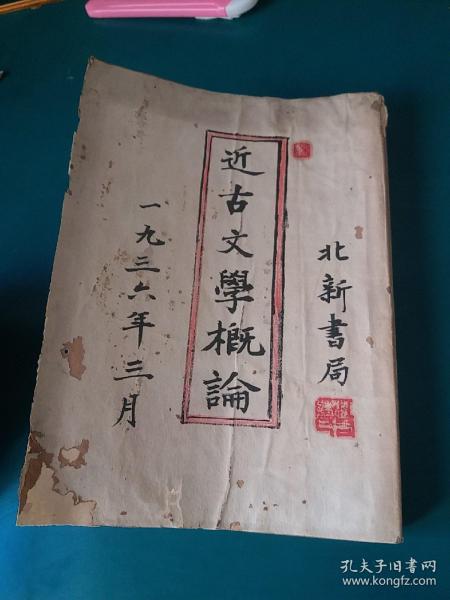 北新書局
近古文學概論
一九三六年三月
孔夫子旧书网
www.kongfz.com